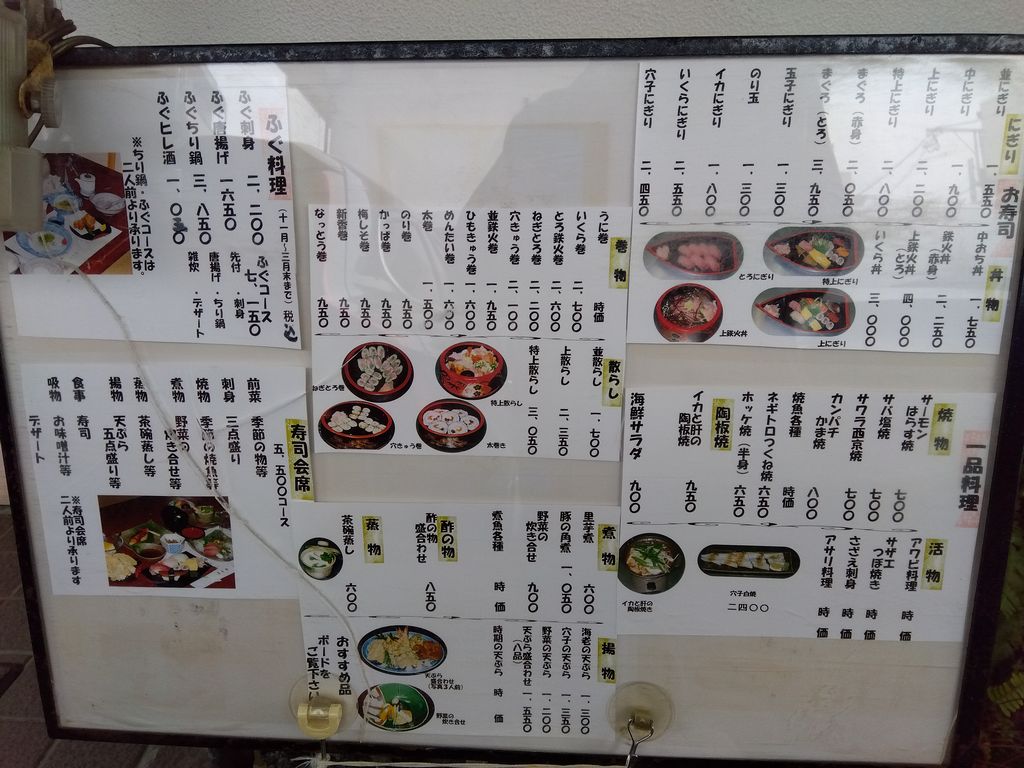 お寿司
にぎり
並にぎり 一、五五〇
中にぎり 一、九〇〇
上にぎり 二、二〇〇
特上にぎり 二、八〇〇
まぐろ(赤身) 二、〇五〇
まぐろ(とろ) 三、九五〇
玉子にぎり 一、三〇〇
のり玉 一、三〇〇
イカにぎり 一、八〇〇
いくらにぎり 二、五五〇
穴子にぎり 二、四五〇
丼物
中おち丼 一、七五〇
鉄火丼(赤身) 二、二五〇
上鉄火丼(とろ) 四、〇〇〇
いくら丼 三、〇〇〇
とろにぎり
特上にぎり
上鉄火丼
上にぎり
巻物
うに巻 時価
いくら巻 二、七〇〇
とろ鉄火巻 二、六〇〇
ねぎとろ巻 二、二〇〇
穴きゅう巻 二、一〇〇
並鉄火巻 一、九五〇
ひもきゅう巻 一、六〇〇
めんたい巻 一、六〇〇
太巻 一、五〇〇
のり巻 九五〇
かっぱ巻 九五〇
梅しそ巻 九五〇
新香巻 九五〇
なっとう巻 九五〇
散らし
並散らし 一、七〇〇
上散らし 二、三五〇
特上散らし 三、〇五〇
ねぎとろ巻
特上散らし
穴きゅう巻
太巻き
ふぐ料理(十一月~三月末まで)税込
ふぐ刺身 二、二〇〇
ふぐ唐揚げ 一六五〇
ふぐちり鍋 三、八五〇
ふぐヒレ酒 一、〇五〇
ふぐコース 七、一五〇
先付・刺身
唐揚げ・ちり鍋
雑炊・デザート
※ちり鍋・ふぐコースは
二人前より承ります。
一品料理
焼物
サーモンはらす焼 七〇〇
サバ塩焼 七〇〇
サワラ西京焼 七〇〇
カンパチかま焼 八〇〇
焼魚各種 時価
ネギトロつくね焼 六五〇
ホッケ焼(半身) 六五〇
陶板焼
イカと肝の陶板焼 九五〇
海鮮サラダ 九〇〇
活物
アワビ料理 時価
サザエつぼ焼き 時価
さざえ刺身 時価
アサリ料理 時価
イカと肝の陶板焼き
穴子白焼
二四〇〇
寿司会席
五、五〇〇コース
前菜 季節の物等
刺身 三点盛り
焼物 季節の焼魚等
煮物 野菜の炊き合せ等
蒸物 茶碗蒸し等
揚物 天ぷら五点盛り等
食事 寿司
吸物 お味噌汁等
デザート
※寿司会席
二人前より承ります
煮物
里芋煮 六〇〇
豚の角煮 一、〇五〇
野菜の炊き合せ 九〇〇
煮魚各種 時価
酢の物
酢の物盛合わせ 八五〇
蒸物
茶碗蒸し 六〇〇
揚物
海老の天ぷら 一、三〇〇
穴子の天ぷら 一、三五〇
野菜の天ぷら 一、二〇〇
天ぷら盛合わせ(八品) 一、五五〇
時期の天ぷら 時価
天ぷら盛合わせ(写真3人前)
野菜の炊き合せ
おすすめ品
ボードを
ご覧下さい